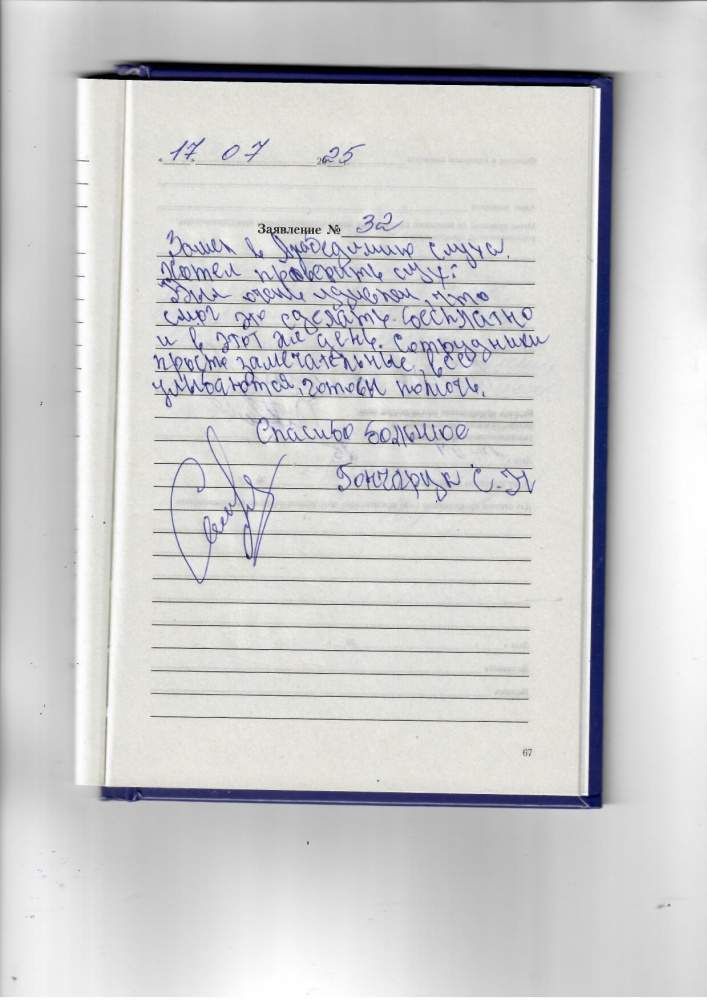 17. 07 2025
Заявление № 32
Зашел в Академию слуха.
Хотел проверить слух.
Был очень удивлен, что
смог это сделать бесплатно
и в этот же день. Сотрудники
просто замечательные, все
улыбаются, готовы помочь.
Спасибо большое
Гончарук С. Н
67